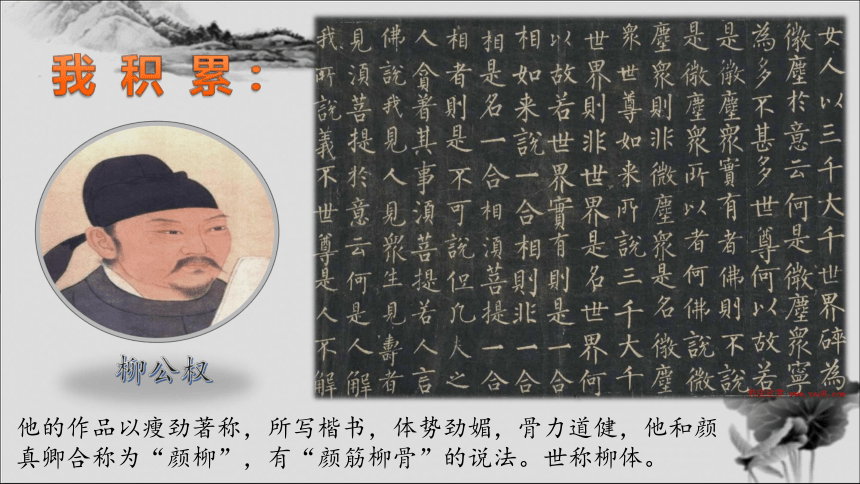 我 积 累：
女人以三千大千世界碎為
微塵於意云何是微塵眾寧
為多不甚多世尊何以故若
是微塵眾實有者佛則不說
是微塵眾所以者何佛說微
塵眾則非微塵眾是名微塵
眾世尊如来所說三千大千
世界則非世界是名世界何
以故若世界實有則是一合
相如来說一合相則非一合
相是名一合相須菩提一合
相者則是不可說但凢夫之
人貪著其事須菩提若人言
佛說我見人見眾生見壽者
見須菩提於意云何是人解
我所說義不世尊是人不解
柳公权
他的作品以瘦劲著称，所写楷书，体势劲媚，骨力道健，他和颜
真卿合称为“颜柳”，有“颜筋柳骨”的说法。世称柳体。